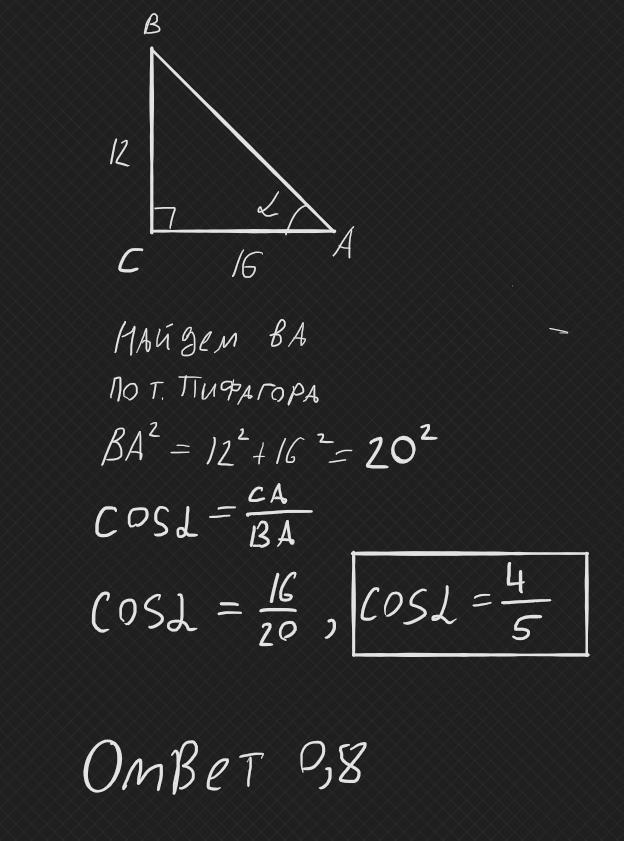 B
12
α
C
16
A
Найдем BA
по т. Пифагора
BA² = 12² + 16² = 20²
cosα = CA/BA
cosα = 16/20, cosα = 4/5
Ответ 0,8